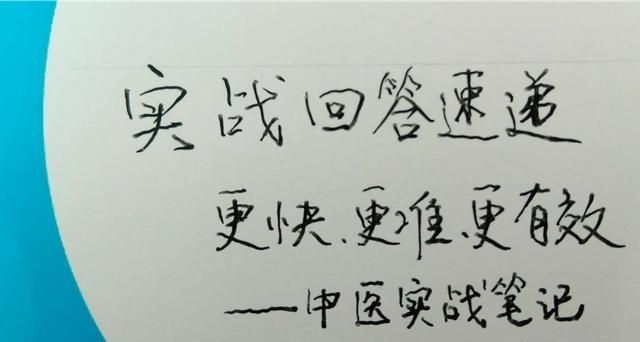 实战回答速递
更快、更准、更有效
——中医实战笔记